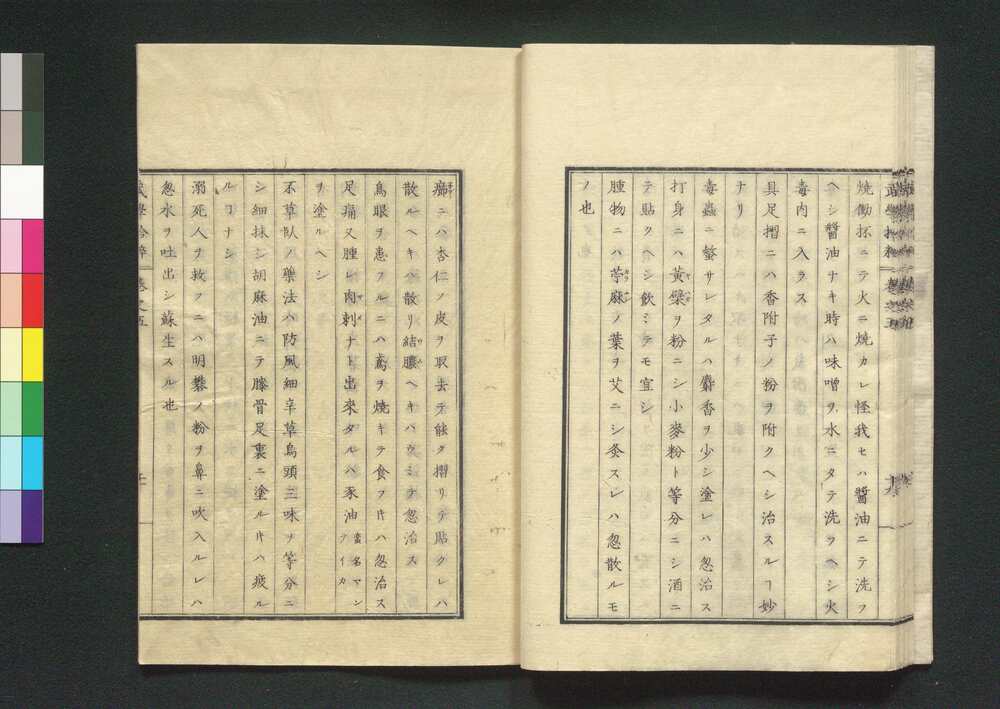 燒働抔ニテ火ニ燒カレ怪我セハ醬油ニテ洗フ
ヘシ醬油ナキ時ハ味噌ヲ水ニタテ洗ヲヘシ火
毒内ニ入ラス
具足摺ニハ香附子ノ粉ヲ附クヘシ治スルヿ妙
ナリ
毒蟲ニ螫サレタルハ麝香ヲ少シ塗レハ忽治ス
打身ニハ黃檗ヲ粉ニシ小麥粉ト等分ニシ酒ニ
テ貼クヘシ飮ミテモ宜シ
腫物ニハ苧麻ノ葉ヲ艾ニシ灸スレハ忽散ルモ
ノ也
癤ニハ杏仁ノ皮ヲ取去テ能ク摺リテ貼クレハ
散ルヘキハ散リ結膿ヘキハウミテ忽治ス
鳥眼ヲ患フルニハ鳶ヲ燒キテ食フ𪜈ハ忽治ス
足痛又腫レ肉刺ナト出來タルハ豕油蛮名マンテイカ
ヲ塗ルヘシ
不草臥ノ藥法ハ防風細辛草烏頭三味ヲ等分ニ
シ細抹シ胡麻油ニテ膝骨足裏ニ塗ル𪜈ハ疲ル
ルヿナシ
溺死人ヲ救フニハ明礬ノ粉ヲ鼻ニ吹入ルレハ
忽水ヲ吐出シ蘇生スル也
卷之五